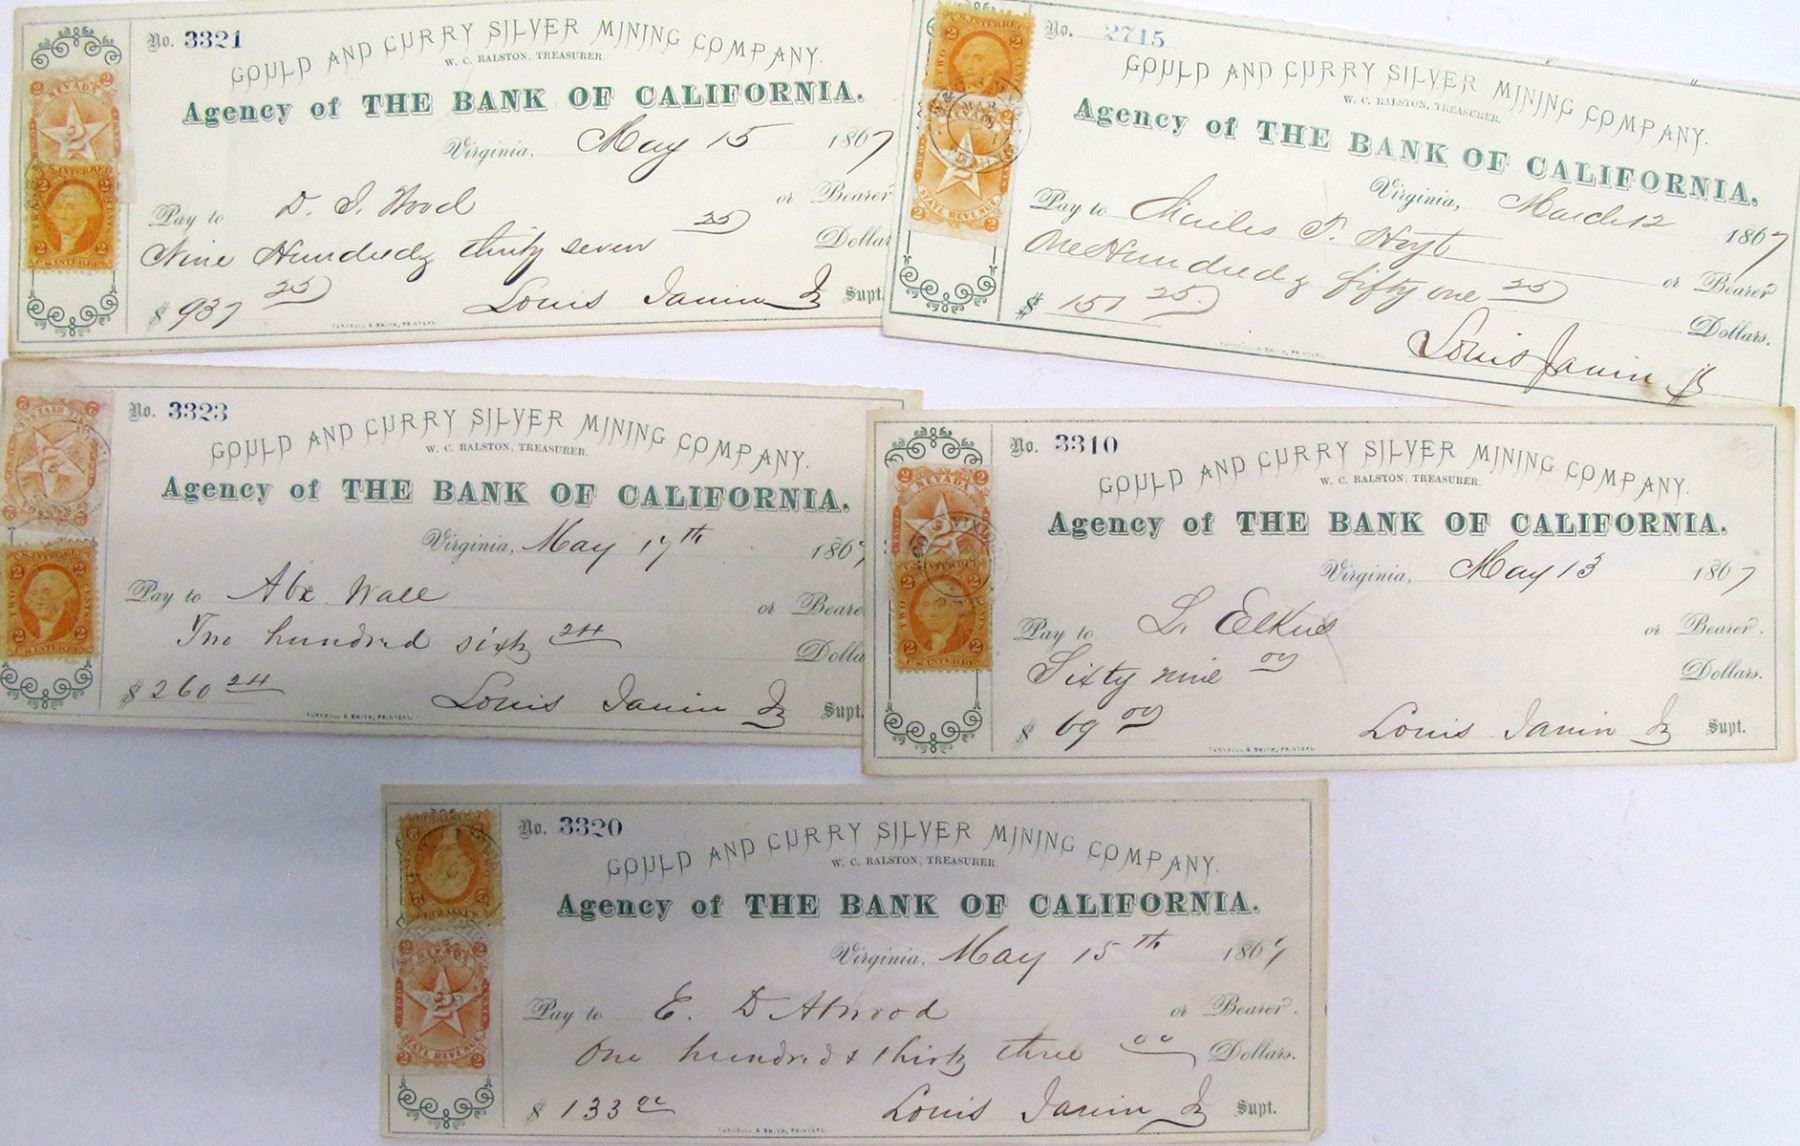 No. 3321
GOULD AND CURRY SILVER MINING COMPANY.
W. C. RALSTON, TREASURER.
Agency of THE BANK OF CALIFORNIA.
Virginia, May 15 1867
Pay to D. S. Wood or Bearer
Nine Hundred thirty seven 25 Dollar
$ 937 25
Louis Janin Jr Supt.
TURNBULL & SMITH, PRINTERS.
NEVADA
2
U.S. INTER. REV.
2 2
No. 2715
GOULD AND CURRY SILVER MINING COMPANY.
W. C. RALSTON, TREASURER.
Agency of THE BANK OF CALIFORNIA.
Virginia, March 12 1867
Pay to Charles T. Hoyt or Bearer
One Hundred fifty one 25 Dollars.
$ 151 25
Louis Janin Jr
TURNBULL & SMITH, PRINTERS.
U.S. INTER. REV.
MAR
NEVADA
2
STATE REVENUE
No. 3323
GOULD AND CURRY SILVER MINING COMPANY.
W. C. RALSTON, TREASURER.
Agency of THE BANK OF CALIFORNIA.
Virginia, May 17th 1867
Pay to Abe Wall or Beare
Two hundred sixty 24 Dolla
$ 260 24
Louis Janin Jr Supt.
TURNBULL & SMITH, PRINTERS.
U.S. INTER. REV.
TWO CENTS
2 2
No. 3310
GOULD AND CURRY SILVER MINING COMPANY.
W. C. RALSTON, TREASURER.
Agency of THE BANK OF CALIFORNIA.
Virginia, May 13 1867
Pay to L. Elkus or Bearer.
Sixty nine 00 Dollars.
$ 69 00
Louis Janin Jr Supt.
TURNBULL & SMITH, PRINTERS.
2 2
NEVADA
TWO CENTS
U.S. INTER. REV.
No. 3320
GOULD AND CURRY SILVER MINING COMPANY.
W. C. RALSTON, TREASURER.
Agency of THE BANK OF CALIFORNIA.
Virginia, May 15th 1867
Pay to E. D Atwood or Bearer.
One hundred & thirty three 00 Dollars.
$ 133 00
Louis Janin Jr Supt.
TURNBULL & SMITH, PRINTERS.
2 NEVADA 2
2
STATE REVENUE